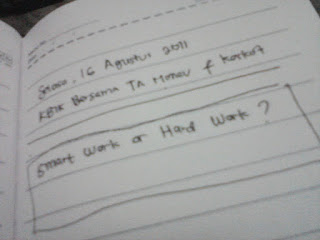 Selasa, 16 Agustus 2011
Bersama TA Monev & Korkot
Smart Work or Hard Work ?